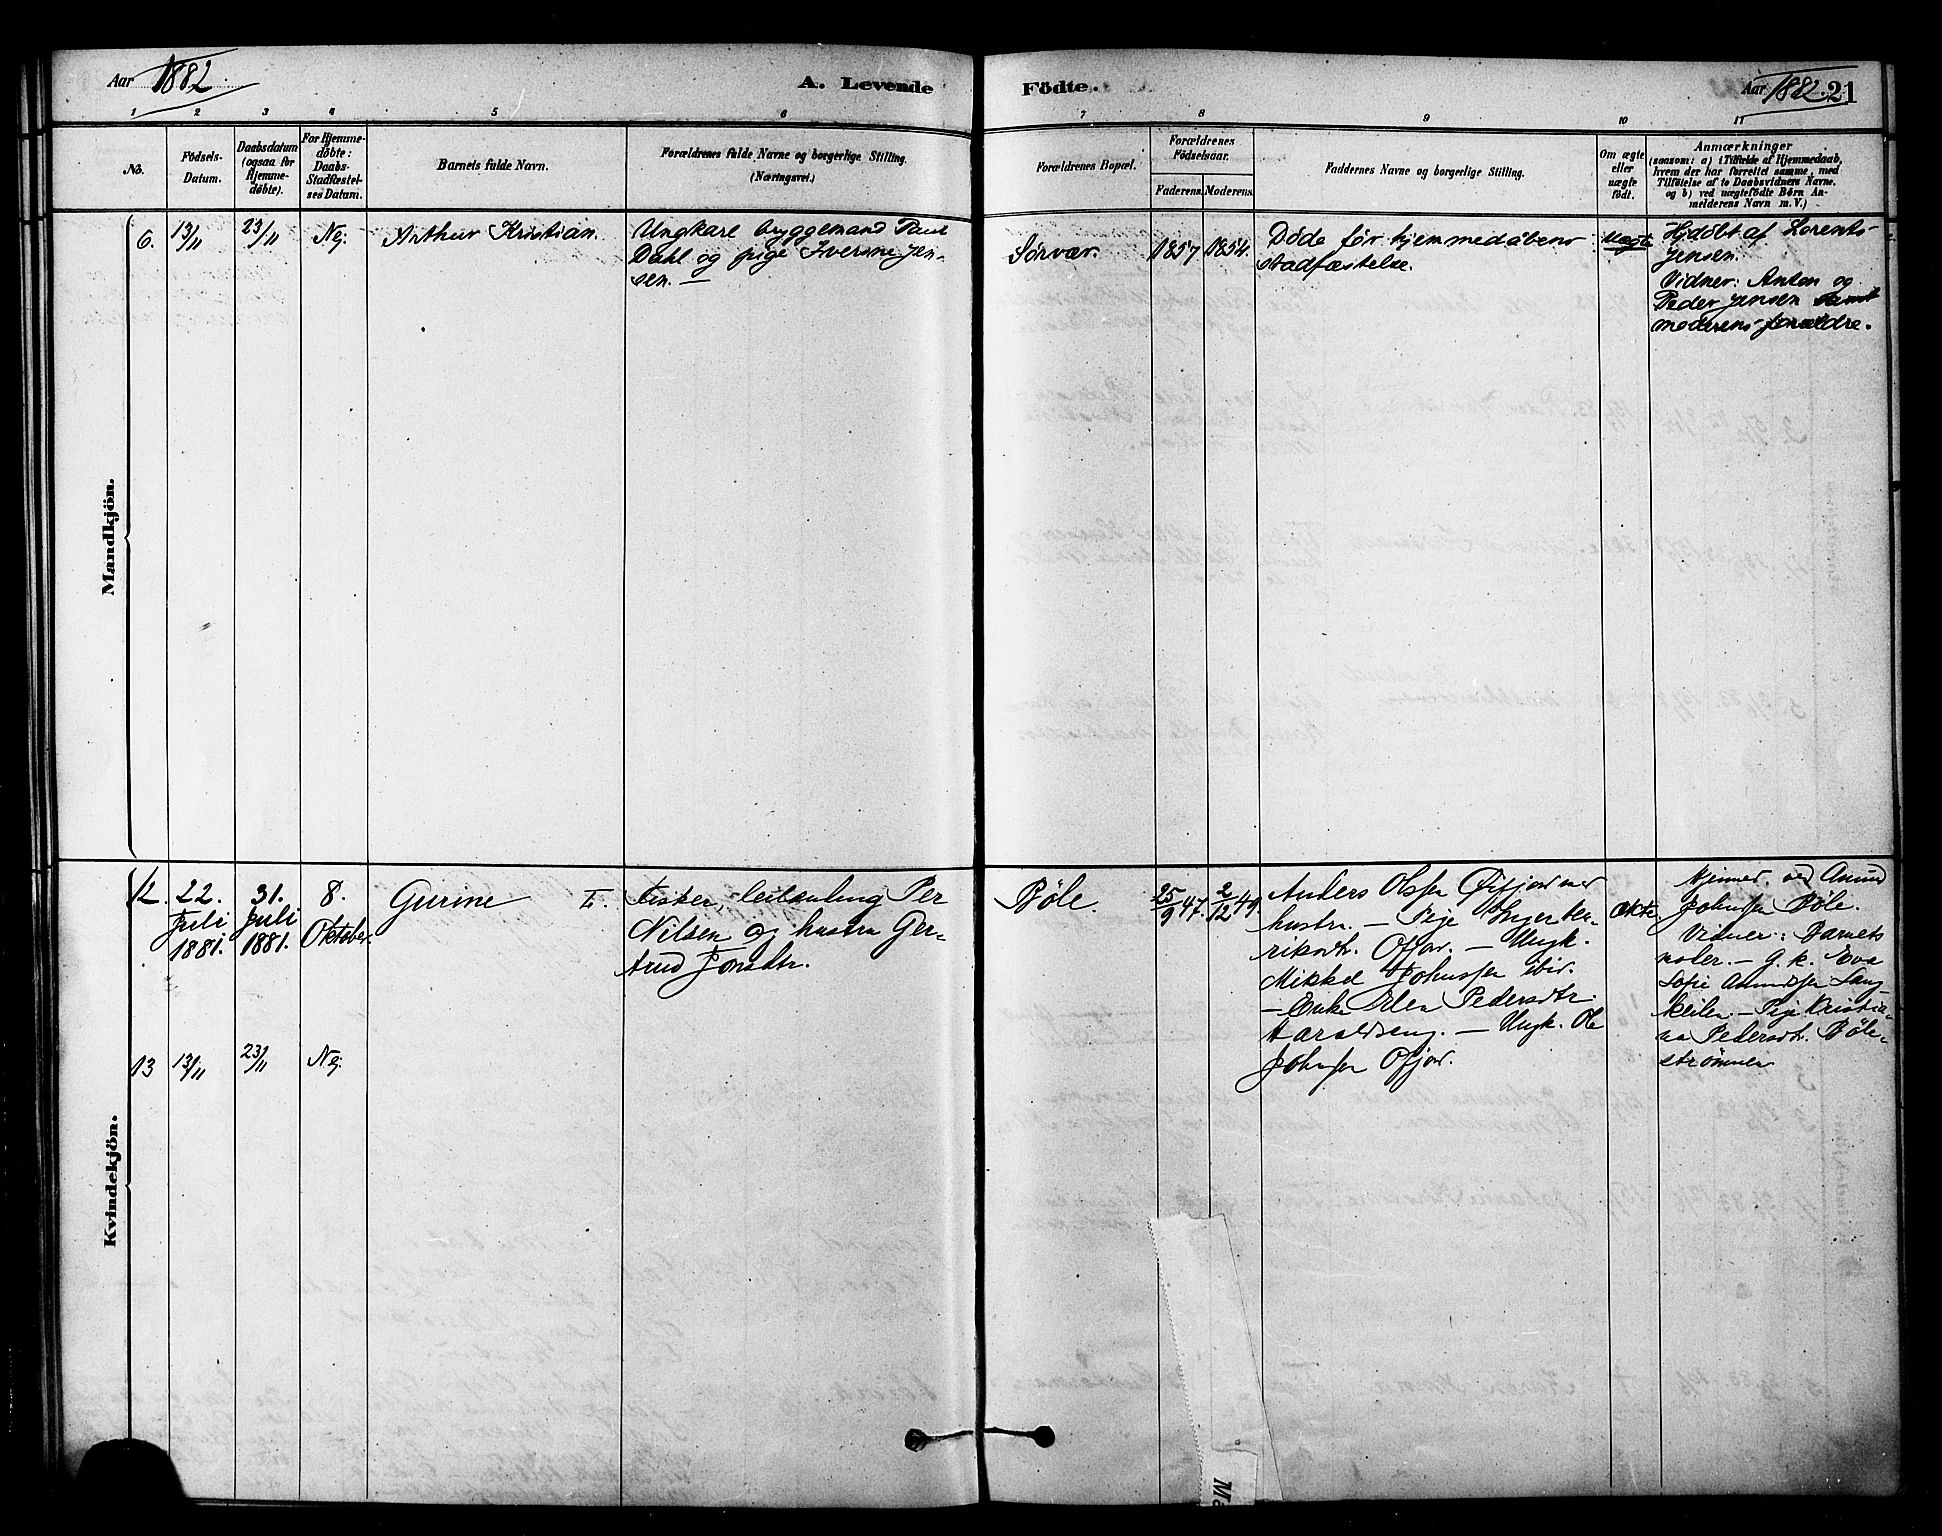 Aar 1882.
A. Levende
Födte.
Aar 1882. 21
1 2 3 4 5 6 7 8 9 10 11
No.
Födsels-
Datum.
Daabsdatum
(ogsaa for
Hjemme-
döbte).
For Hjemme-
døbte:
Daabs-
Stadfæstel-
ses Datum.
Barnets fulde Navn.
Forældrenes fulde Navne og borgerlige Stilling.
(Næringsvei.)
Forældrenes Bopæl.
Forældrenes
Födselsaar.
Faderens. Moderens.
Faddernes Navne og borgerlige Stilling.
Om ægte
eller
uægte
födt.
Anmærkninger
(saasom: a) i Tilfælde af Hjemmedaab,
hvem der har forrettet samme, med
Tilföielse af to Daabsvidners Navne,
og b) ved uægtefödte Börn An-
melderens Navn m. V.)
Mandkjön.
6. 13/11 23/11 Nej. Arthur Kristian.
Ungkarl bryggemand Paul
Dahl og pige Iversine Jen-
sen. —
Sørvær. 1857 1854.
Døde før hjemmedåbens
stadfæstelse.
Uægte
Hjdöbt af Lorents
Jensen.
Vidner: Anton og
Peder Jensen samt
moderens forældre.
Kvindekjön.
12. 22.
Juli
1881.
31.
Juli
1881.
8.
Oktober.
Gurine
Fisker, leilænding Per
Nilsen og hustru Ger-
trud Jonsdtr.
Bøle. 25/9 47. 2/12 49.
Anders Olssen Øifjor med
hustru. — Pige
riksdt. Ofjor. — Ungk.
Mikkel Johnssen ibid.
— Enke Elen Pedersdtr.
Haraldseng. — Ungk. Ole
Johnsen Ofjor.
Ekte.
Hjemmed. ved Amund
Johnssen Bøle.
Vidner: Barnets
moder. — G. k. Eva
Sofie Amundsen Lang-
keilen. — Pige Kristia-
na Pedersdt. Bøle-
strømmen
13 13/11 23/11 Nej.